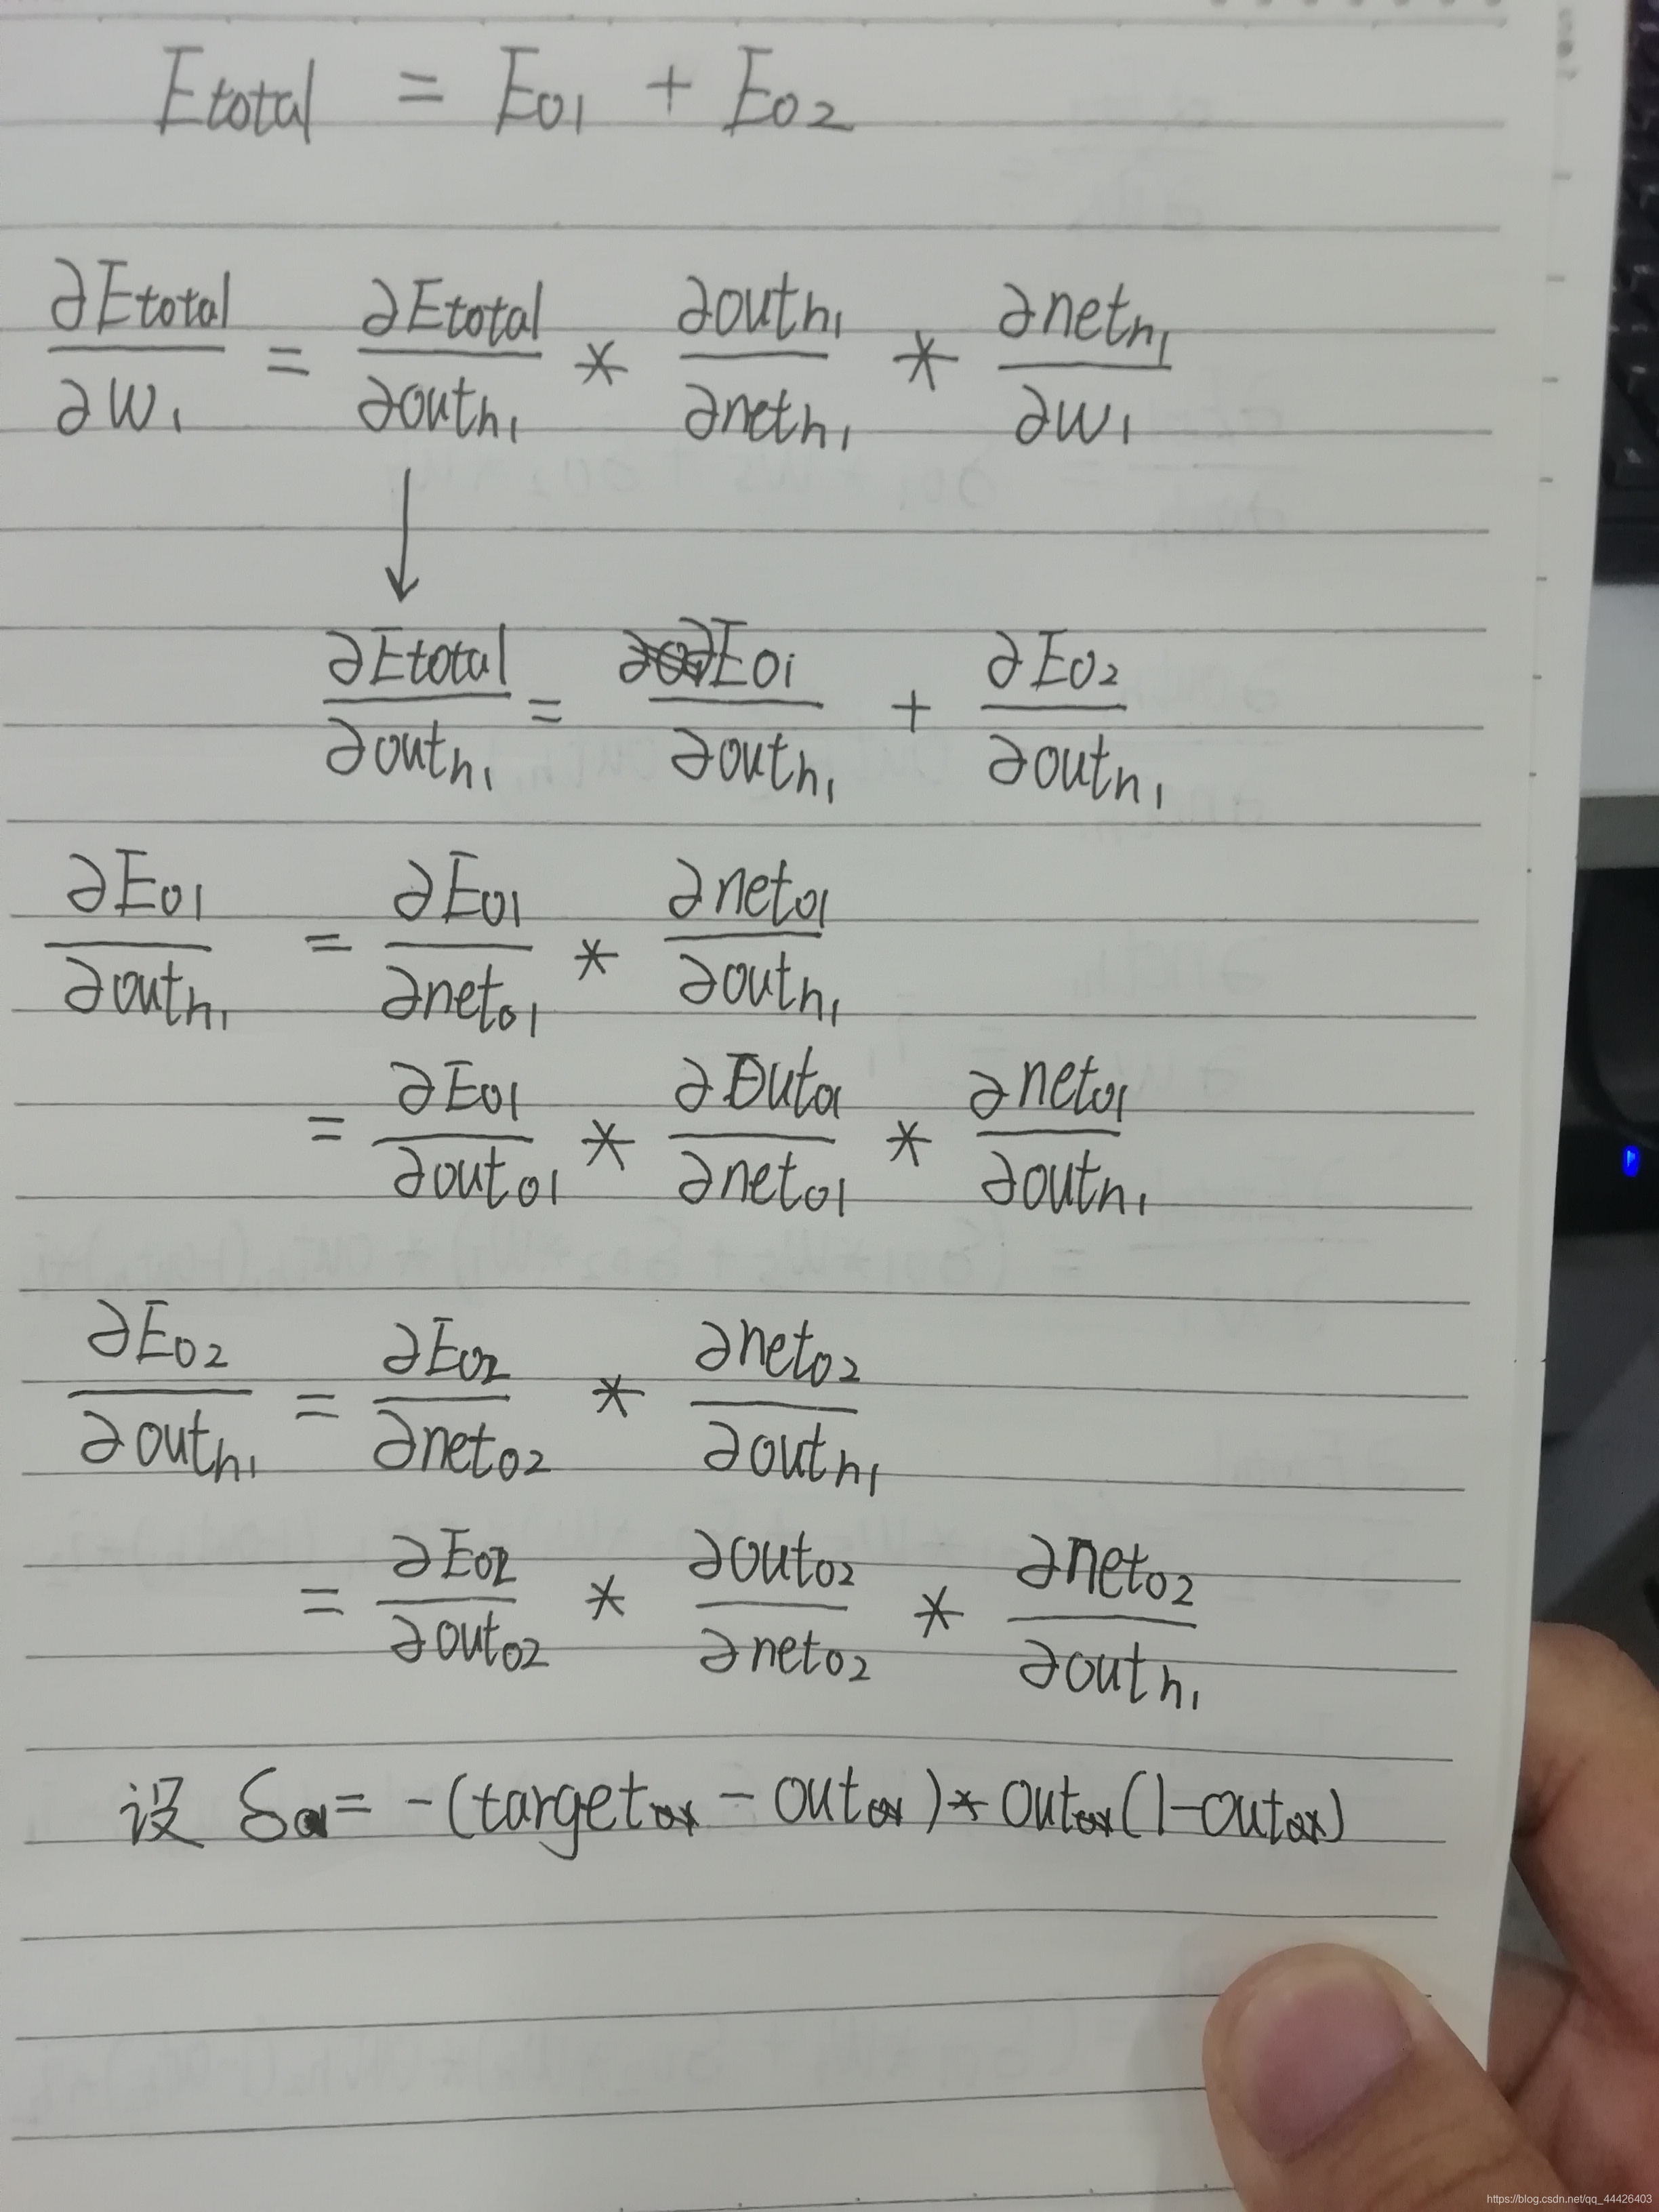 E_{total} = E_{01} + E_{02}
\frac{∂E_{total}}{∂w_1} = \frac{∂E_{total}}{∂out_{h1}} * \frac{∂out_{h1}}{∂net_{h1}} * \frac{∂net_{h1}}{∂w_1}
↓
\frac{∂E_{total}}{∂out_{h1}} = \frac{∂E_{01}}{∂out_{h1}} + \frac{∂E_{02}}{∂out_{h1}}
\frac{∂E_{01}}{∂out_{h1}} = \frac{∂E_{01}}{∂net_{01}} * \frac{∂net_{01}}{∂out_{h1}}
= \frac{∂E_{01}}{∂out_{01}} * \frac{∂out_{01}}{∂net_{01}} * \frac{∂net_{01}}{∂out_{h1}}
\frac{∂E_{02}}{∂out_{h1}} = \frac{∂E_{02}}{∂net_{02}} * \frac{∂net_{02}}{∂out_{h1}}
= \frac{∂E_{02}}{∂out_{02}} * \frac{∂out_{02}}{∂net_{02}} * \frac{∂net_{02}}{∂out_{h1}}
设 δ = -(target_{ox} - out_{ox}) * out_{ox}(1-out_{ox})
https://blog.csdn.net/qq_44426403